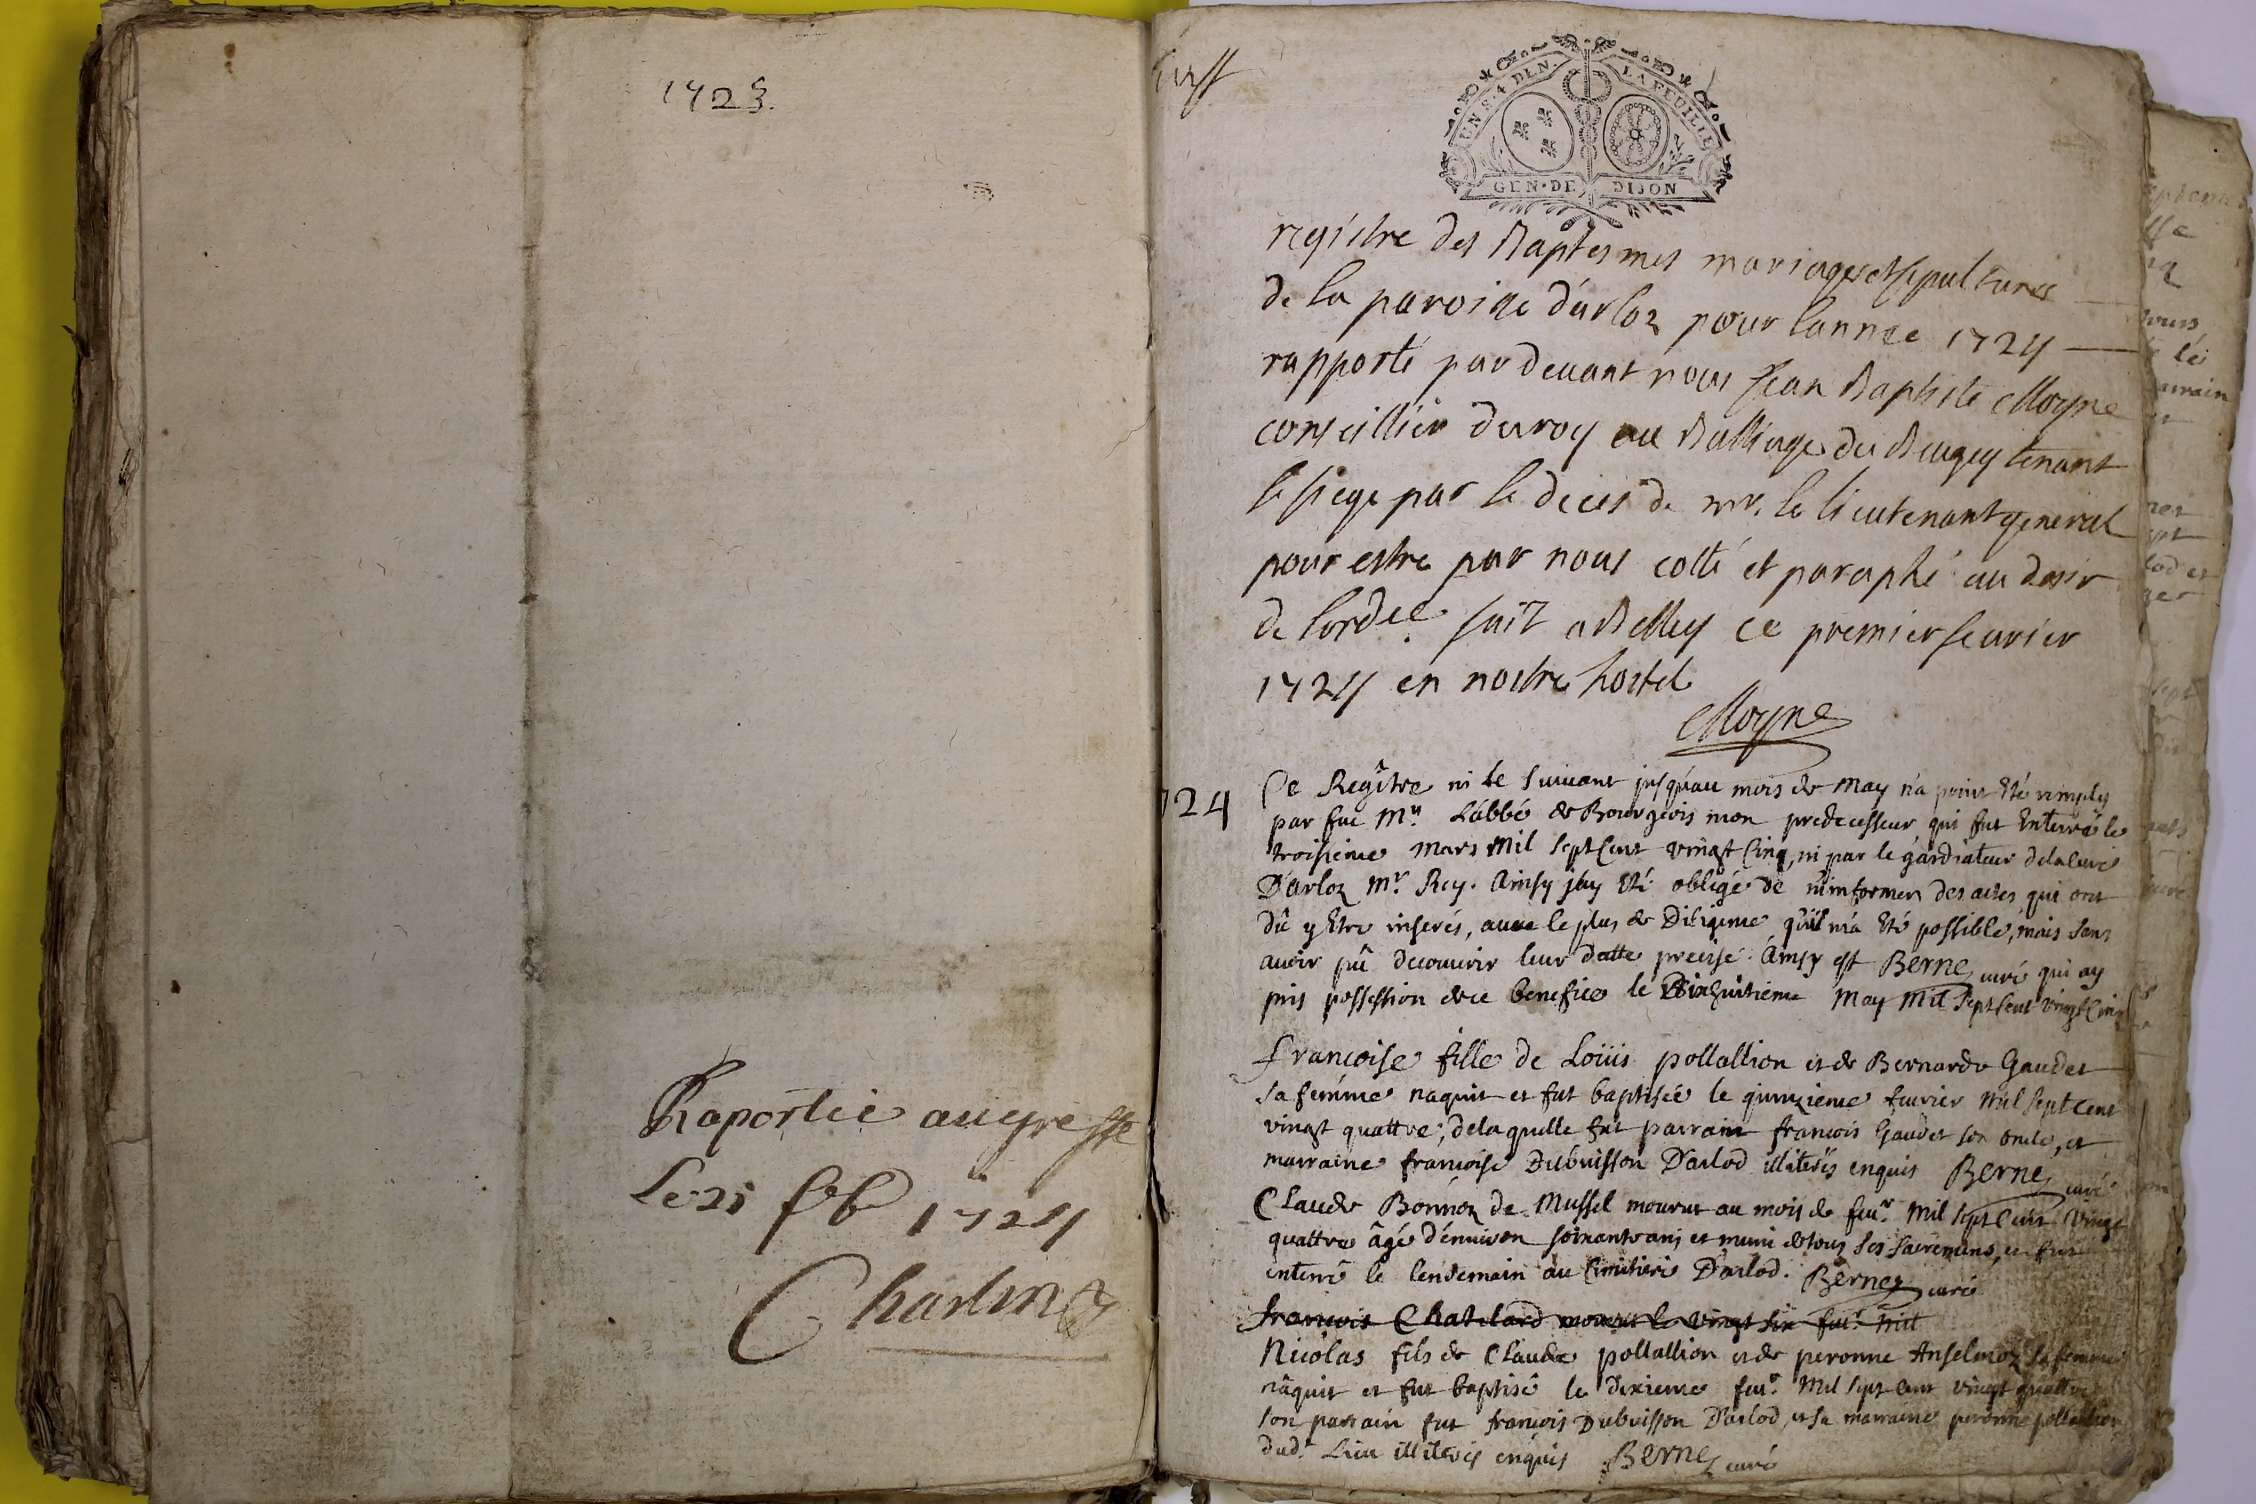 1723.
Raportée au gresse
Le 25 feb 1724
Charlin
UN S. 4 DEN. LA FEUILLE
GEN. DE DIJON
registre des Baptesmes mariages et sepultures
de la paroisse d'arloz pour lannee 1724
rapporté pardeuant nous Jean Baptiste Moyne
conseillier du roy au Balliage du Beugey tenant
le siege par le deces de mr. le lieutenant general
pour estre par nous cotté et paraphé au desir
de lordce. fait a Belley ce premier feurier
1724 en nostre hostel
Moyne
724
Ce Regître ni le suiuant jusqu'au mois de may n'a point été remply
par fue Mr. L'abbé de Bourgeois mon predecesseur qui fut Enterré le
troisieme mars mil sept Cent vingt Cinq, ni par le gardiateur de la cure
D'arloz Mr. Rey. Ainsy j'ay été obligé de m'informer des actes qui ont
dû y Etre inserés, auec le plus de Diligence qu'il m'a été possible, mais sans
auoir pû decouurir leur datte precise. Ainsy est Bernez curé qui ay
pris possession de ce benefice le Dixhuitieme May Mil sept Cent vingt Cinq
françoise fille de Loüis pollallion et de Bernarde Gaudet
sa femme naquit et fut baptisée le quinzieme feurier Mil sept Cent
vingt quattre, de laquelle fut parrain françois Gaudet son oncle, et
marraine françoise Dubuisson D'arlod illiterés enquis Bernez curé
Claude Bonnoz de Mussel mourut au mois de feur. Mil sept Cent Vingt
quattre âgé d'enuiron soixante ans et muni de tous ses sacremens, et fut
enterré le lendemain au Cimitiere D'arlod. Bernez curé
françois Chatelard mourut le vingt six feur. mil
Nicolas fils de Claude pollallion et de peronne Anselmoz sa femme
nâquit et fut baptisé le dixieme feur. Mil sept Cent vingt quattre
son parrain fut françois Dubuisson D'arlod, et sa marraine peronne pollallion
dud. Lieu illiterés enquis Bernez curé